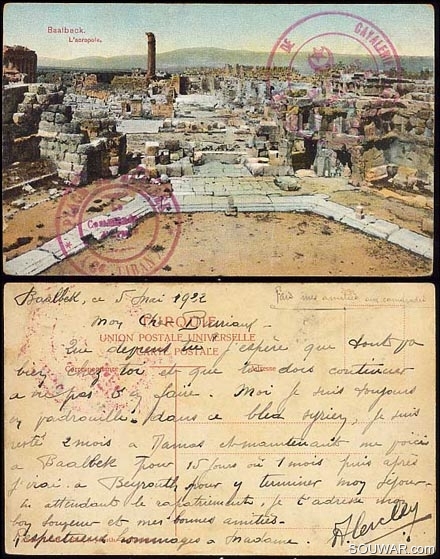 Baalbeck.
L'acropole.
DE CAVALERIE
LIBAN
Baalbek, ce 5 Mai 1922
Mon Cher
TURQUIE
UNION POSTALE UNIVERSELLE
POSTALE
Correspondance
Que deviens tu, j'espère que tout va
bien toi et que tu dois continuer
a ne pas t'en faire. Moi je suis toujours
en patrouille dans ce bled syrien, je suis
resté 2 mois a Damas et maintenant me voici
a Baalbek pour 15 jours ou 1 mois puis après
j'irai a Beyrouth pour y terminer mon séjour
en attendant le rapatriement, je t'adresse mon
bonjour et mes bonnes amitiés
Respectueux hommages a Madame.
SOUWAR.com